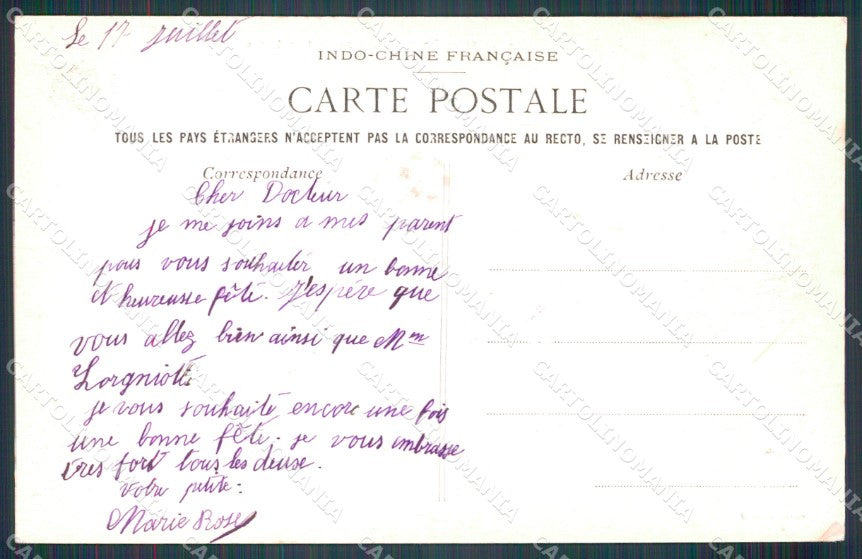 Le 17 juillet
INDO-CHINE FRANÇAISE
CARTE POSTALE
TOUS LES PAYS ÉTRANGERS N'ACCEPTENT PAS LA CORRESPONDANCE AU RECTO, SE RENSEIGNER A LA POSTE
Correspondance
Adresse
Cher Docteur
je me joins a mes parent
pous vous souhaiter un bonne
et heureusse fête. J'espère que
vous allez bien ainsi que Mme
Lorgniott
je vous souhaite encore une fois
une bonne fête. je vous embrasse
tres fort tous les deuse.
votre petite.
Marie Rose
CARTOLINOMANIA